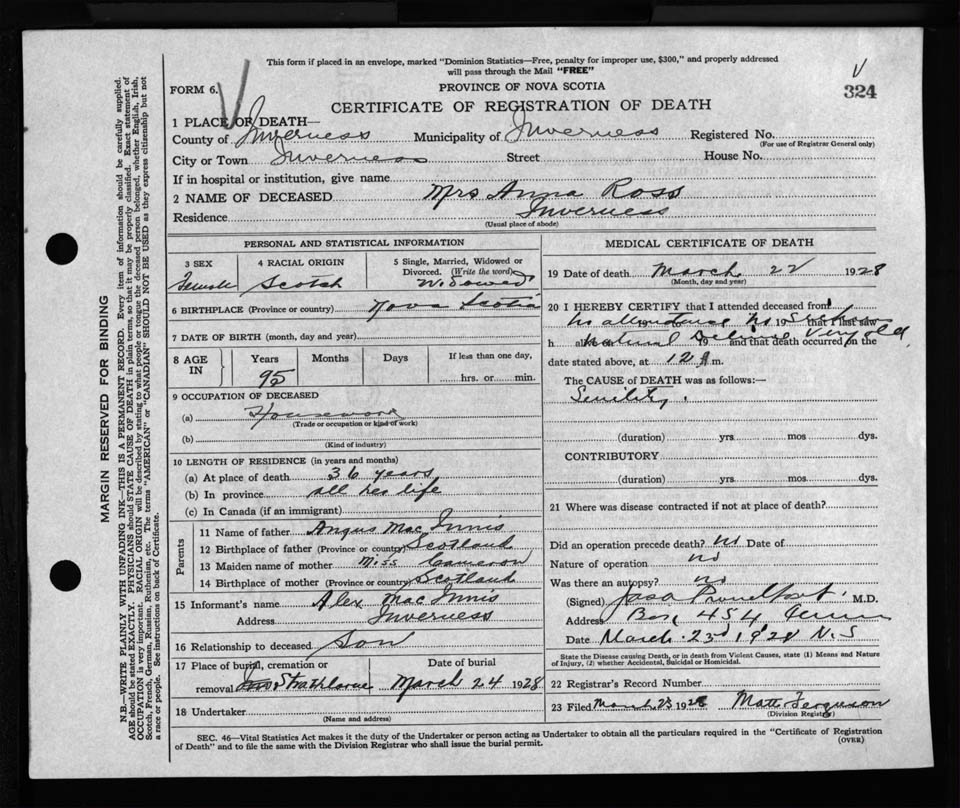 This form if placed in an envelope, marked "Dominion Statistics—Free, penalty for improper use, $300," and properly addressed
will pass through the Mail "FREE"
FORM 6.
PROVINCE OF NOVA SCOTIA
324
CERTIFICATE OF REGISTRATION OF DEATH
1 PLACE OF DEATH—
County of Inverness Municipality of Inverness Registered No.
(For use of Registrar General only)
City or Town Inverness Street House No.
If in hospital or institution, give name
2 NAME OF DECEASED Mrs Anna Ross
Residence Inverness
(Usual place of abode)
PERSONAL AND STATISTICAL INFORMATION
3 SEX 4 RACIAL ORIGIN 5 Single, Married, Widowed or Divorced. (Write the word)
Female Scotch Widowed
6 BIRTHPLACE (Province or country) Nova Scotia
7 DATE OF BIRTH (month, day and year)
8 AGE IN Years Months Days If less than one day,
95 hrs. or min.
9 OCCUPATION OF DECEASED
(a) Housework
(Trade or occupation or kind of work)
(b)
(Kind of industry)
10 LENGTH OF RESIDENCE (in years and months)
(a) At place of death 36 years
(b) In province all her life
(c) In Canada (if an immigrant)
Parents
11 Name of father Angus Mac Innis
12 Birthplace of father (Province or country) Scotland
13 Maiden name of mother Miss Cameron
14 Birthplace of mother (Province or country) Scotland
15 Informant's name Alex Mac Innis
Address Inverness
16 Relationship to deceased Son
17 Place of burial, cremation or Date of burial
removal Strathlorne March 24 1928
18 Undertaker
(Name and address)
MEDICAL CERTIFICATE OF DEATH
19 Date of death March 22 1928
(Month, day and year)
20 I HEREBY CERTIFY that I attended deceased from
No attendance 19 to 19 that I last saw
h alive on Natural 19 and that death occurred on the
very old
date stated above, at 12 m.
The CAUSE of DEATH was as follows:—
Senility.
(duration) yrs. mos. dys.
CONTRIBUTORY
(duration) yrs. mos. dys.
21 Where was disease contracted if not at place of death?
Did an operation precede death? no Date of
Nature of operation no
Was there an autopsy? no
(Signed) M.D.
Address Box 454
Date March 23rd 1928 N.S
State the Disease causing Death, or in death from Violent Causes, state (1) Means and Nature
of Injury, (2) whether Accidental, Suicidal or Homicidal.
22 Registrar's Record Number
23 Filed March 23 1928 Matt Ferguson
(Division Registrar)
SEC. 46—Vital Statistics Act makes it the duty of the Undertaker or person acting as Undertaker to obtain all the particulars required in the "Certificate of Registration
of Death" and to file the same with the Division Registrar who shall issue the burial permit.
(OVER)
MARGIN RESERVED FOR BINDING
N.B.—WRITE PLAINLY WITH UNFADING INK—THIS IS A PERMANENT RECORD. Every item of information should be carefully supplied.
AGE should be stated EXACTLY. PHYSICIANS should STATE CAUSE OF DEATH in plain terms, so that it may be properly classified. Exact statement of
OCCUPATION is very important. RACIAL ORIGIN will be described by stating to what people or tongue the deceased person belonged, whether English, Irish,
Scotch, French, German, Russian, Ruthenian, etc. The terms "AMERICAN" or "CANADIAN" SHOULD NOT BE USED as they express citizenship but not
a race or people. See instructions on back of Certificate.